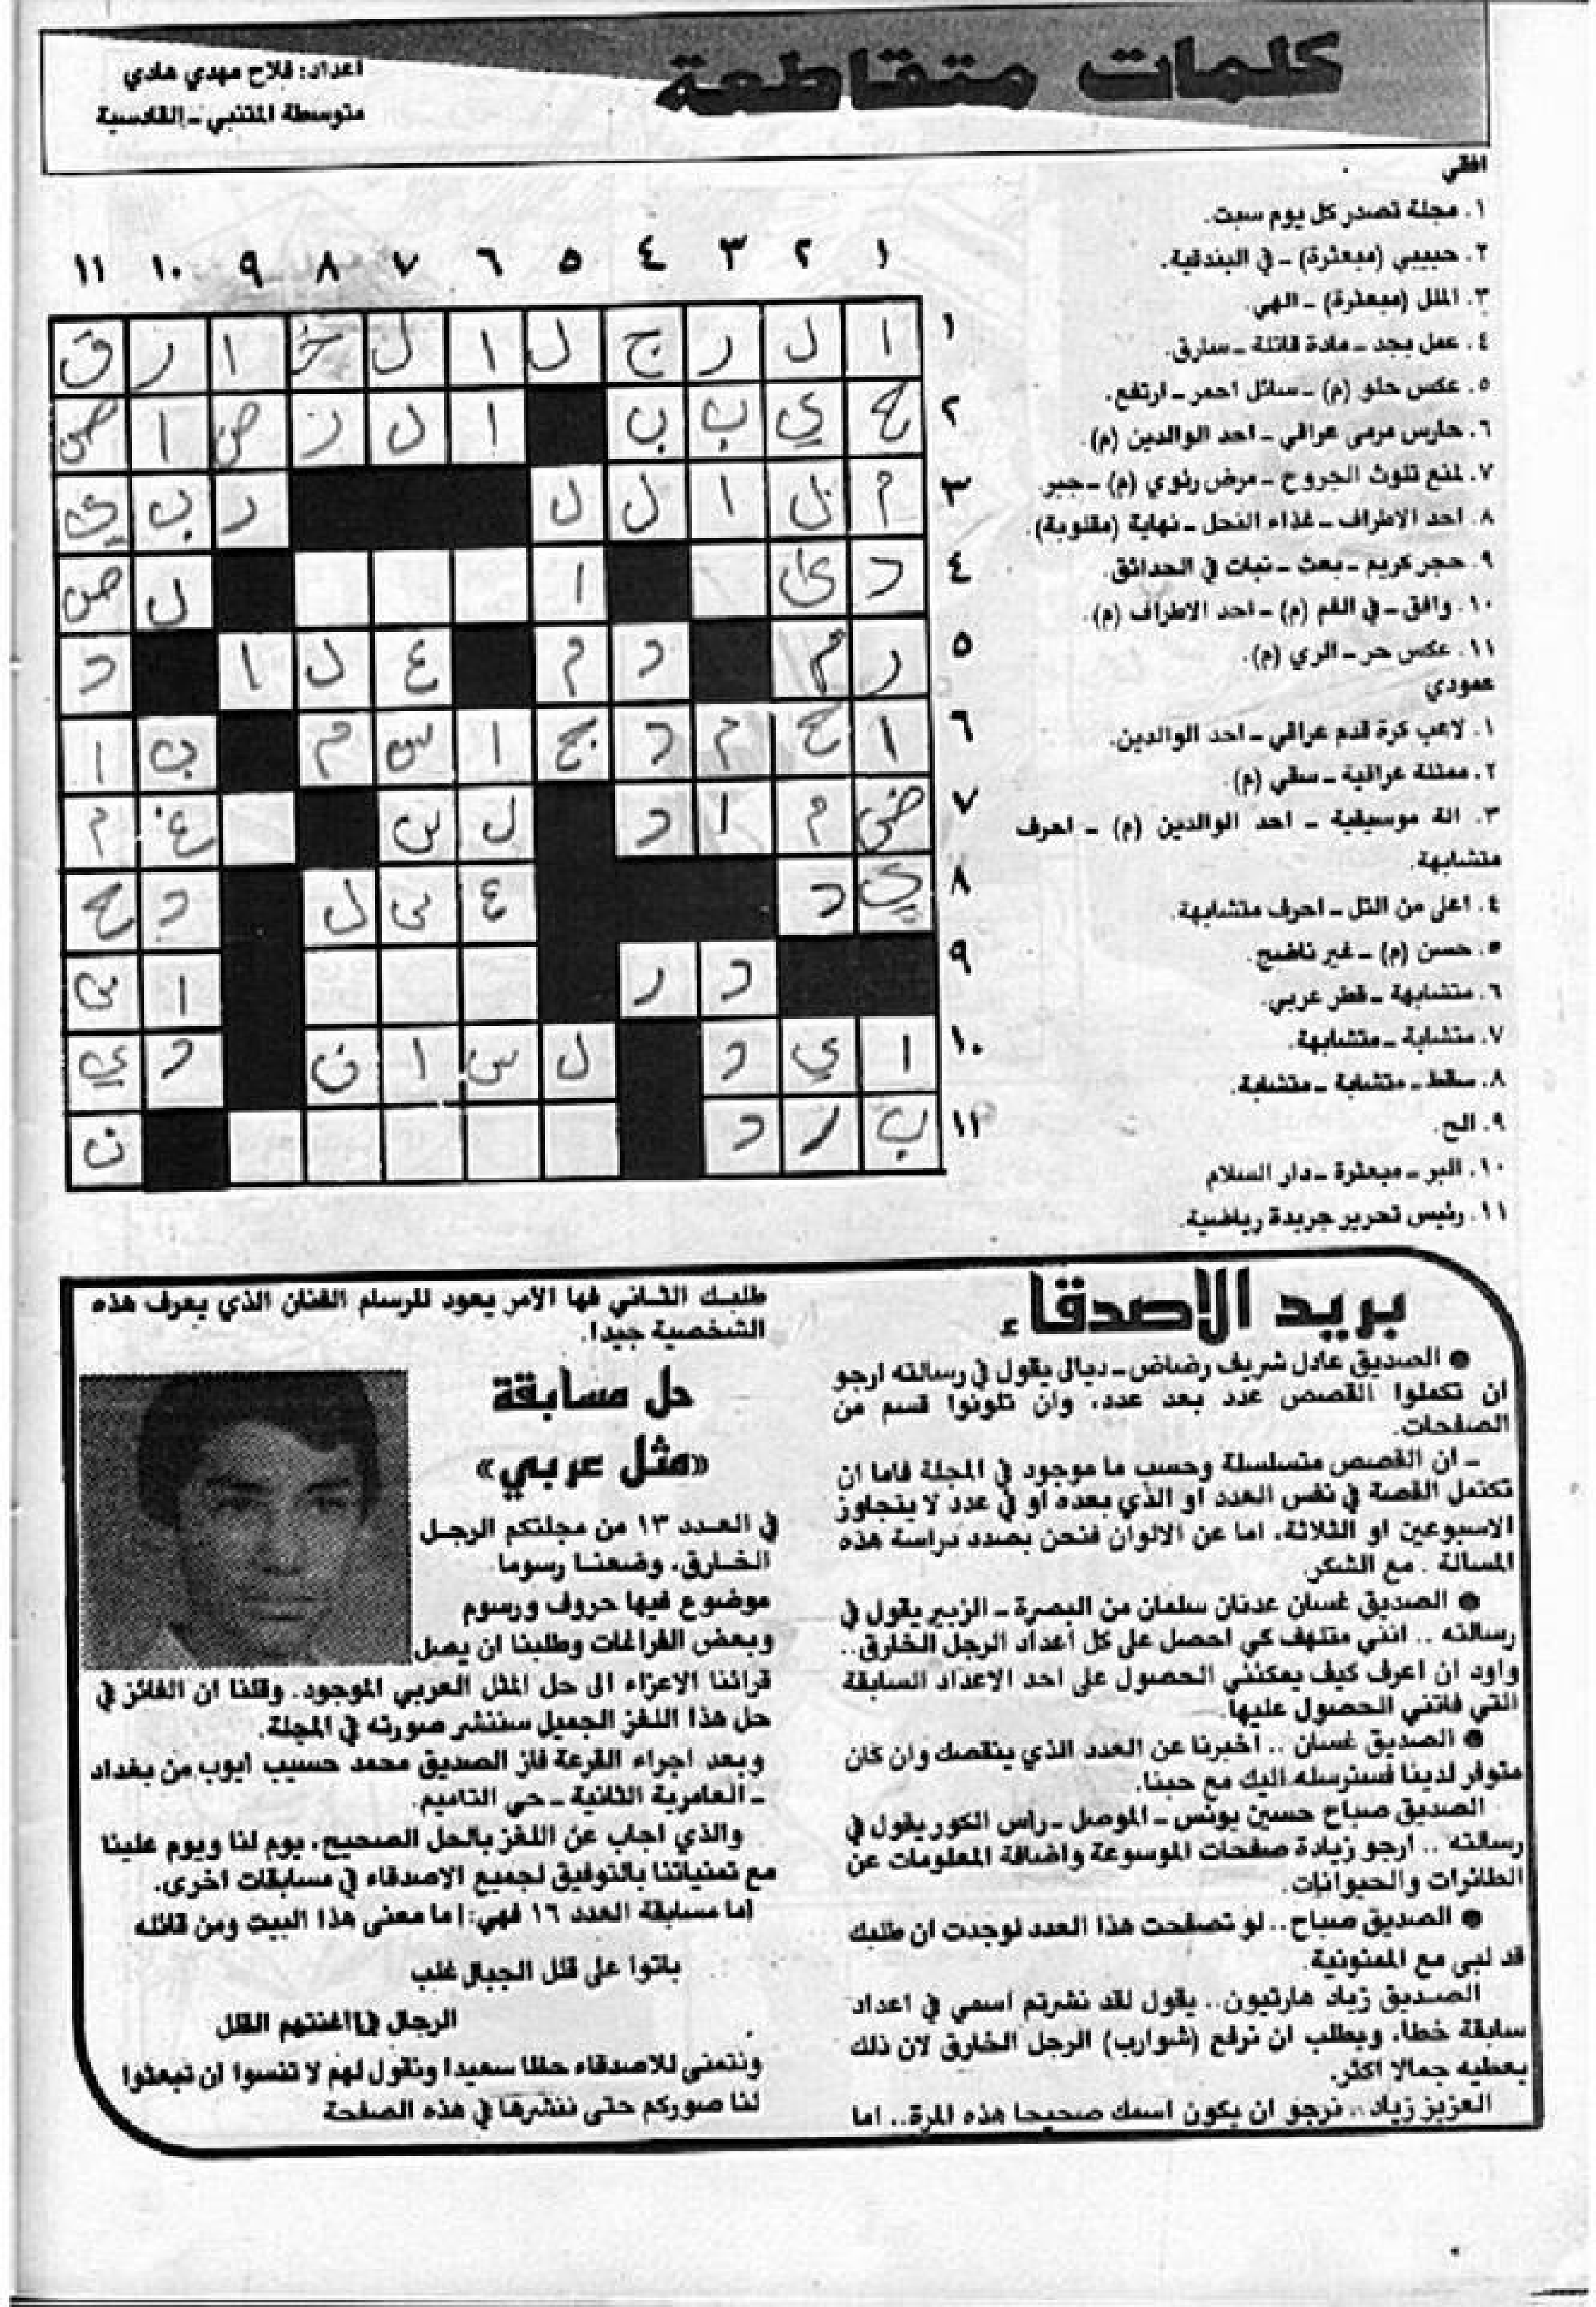 كلمات متقاطعة
اعداد: فلاح مهدي هادي
متوسطة المتنبي ـ القادسية
افقي
١. مجلة تصدر كل يوم سبت.
٢. حبيبي (مبعثرة) ـ في البندقية.
٣. الملل (مبعثرة) ـ الهي.
٤. عمل بجد ـ مادة قاتلة ـ سارق.
٥. عكس حلو (م) ـ سائل احمر ـ ارتفع.
٦. حارس مرمى عراقي ـ احد الوالدين (م).
٧. لمنع تلوث الجروح ـ مرض رئوي (م) ـ جبر.
٨. احد الاطراف ـ غذاء النحل ـ نهاية (مقلوبة).
٩. حجر كريم ـ بعث ـ نبات في الحدائق.
١٠. وافق ـ في الفم (م) ـ احد الاطراف (م).
١١. عكس حر ـ الري (م).
عمودي
١. لاعب كرة قدم عراقي ـ احد الوالدين.
٢. ممثلة عراقية ـ سقي (م).
٣. الة موسيقية ـ احد الوالدين (م) ـ احرف
متشابهة.
٤. اعلى من التل ـ احرف متشابهة.
٥. حسن (م) ـ غير ناضج.
٦. متشابهة ـ قطر عربي.
٧. متشابة ـ متشابهة.
٨. سقط ـ متشابة ـ متشابة.
٩. الح.
١٠. البر ـ مبعثرة ـ دار السلام
١١. رئيس تحرير جريدة رياضية.
١ ٢ ٣ ٤ ٥ ٦ ٧ ٨ ٩ ١٠ ١١
١ ا ل ر ج ل ا ل خ ا ر ق
٢ ح ي ب ب ا ل ر ص ا ص
٣ م ل ا ل ل ر ب ي
٤ د ى ا ل ص
٥ ر م د م ع ل ا د
٦ ا ح م د ج ا س م ب ا
٧ ض م ا د ل س غ م
٨ ي د ع س ل د ح
٩ د ر ا س
١٠ ا ي د ل س ا ن د ي
١١ ب ر د ن
بريد الاصدقاء
● الصديق عادل شريف رضاض ـ ديالى يقول في رسالته ارجو
ان تكملوا القصص عدد بعد عدد، وان تلونوا قسم من
الصفحات.
ـ ان القصص متسلسلة وحسب ما موجود في المجلة فاما ان
تكتمل القصة في نفس العدد او الذي بعده او في عدد لا يتجاوز
الاسبوعين او الثلاثة، اما عن الالوان فنحن بصدد دراسة هذه
المسالة . مع الشكر.
● الصديق غسان عدنان سلمان من البصرة ـ الزبير يقول في
رسالته .. انني متلهف كي احصل على كل اعداد الرجل الخارق..
واود ان اعرف كيف يمكنني الحصول على احد الاعداد السابقة
التي فاتني الحصول عليها.
● الصديق غسان .. اخبرنا عن العدد الذي ينقصك وان كان
متوفر لدينا فسنرسله اليك مع حبنا.
الصديق صباح حسين يونس ـ الموصل ـ راس الكور يقول في
رسالته .. ارجو زيادة صفحات الموسوعة واضافة المعلومات عن
الطائرات والحيوانات.
● الصديق صباح.. لو تصفحت هذا العدد لوجدت ان طلبك
قد لبى مع الممنونية.
الصديق زياد هارتيون.. يقول لقد نشرتم اسمي في اعداد
سابقة خطا، ويطلب ان نرفع (شوارب) الرجل الخارق لان ذلك
يعطيه جمالا اكثر.
العزيز زياد.. نرجو ان يكون اسمك صحيحا هذه المرة.. اما
طلبك الثاني فها الامر يعود للرسام الفنان الذي يعرف هذه
الشخصية جيدا.
حل مسابقة
«مثل عربي»
في العدد ١٣ من مجلتكم الرجل
الخارق، وضعنا رسوما
موضوع فيها حروف ورسوم
وبعض الفراغات وطلبنا ان يصل
قرائنا الاعزاء الى حل المثل العربي الموجود. وقلنا ان الفائز في
حل هذا اللغز الجميل سننشر صورته في المجلة.
وبعد اجراء القرعة فاز الصديق محمد حسيب ايوب من بغداد
ـ العامرية الثانية ـ حي التاميم.
والذي اجاب عن اللغز بالحل الصحيح، يوم لنا ويوم علينا
مع تمنياتنا بالتوفيق لجميع الاصدقاء في مسابقات اخرى.
اما مسابقة العدد ١٦ فهي: اما معنى هذا البيت ومن قائله
باتوا على قلل الجبال غلب
الرجال في اغنتهم القلل
ونتمنى للاصدقاء حظا سعيدا ونقول لهم لا تنسوا ان تبعثوا
لنا صوركم حتى ننشرها في هذه الصفحة